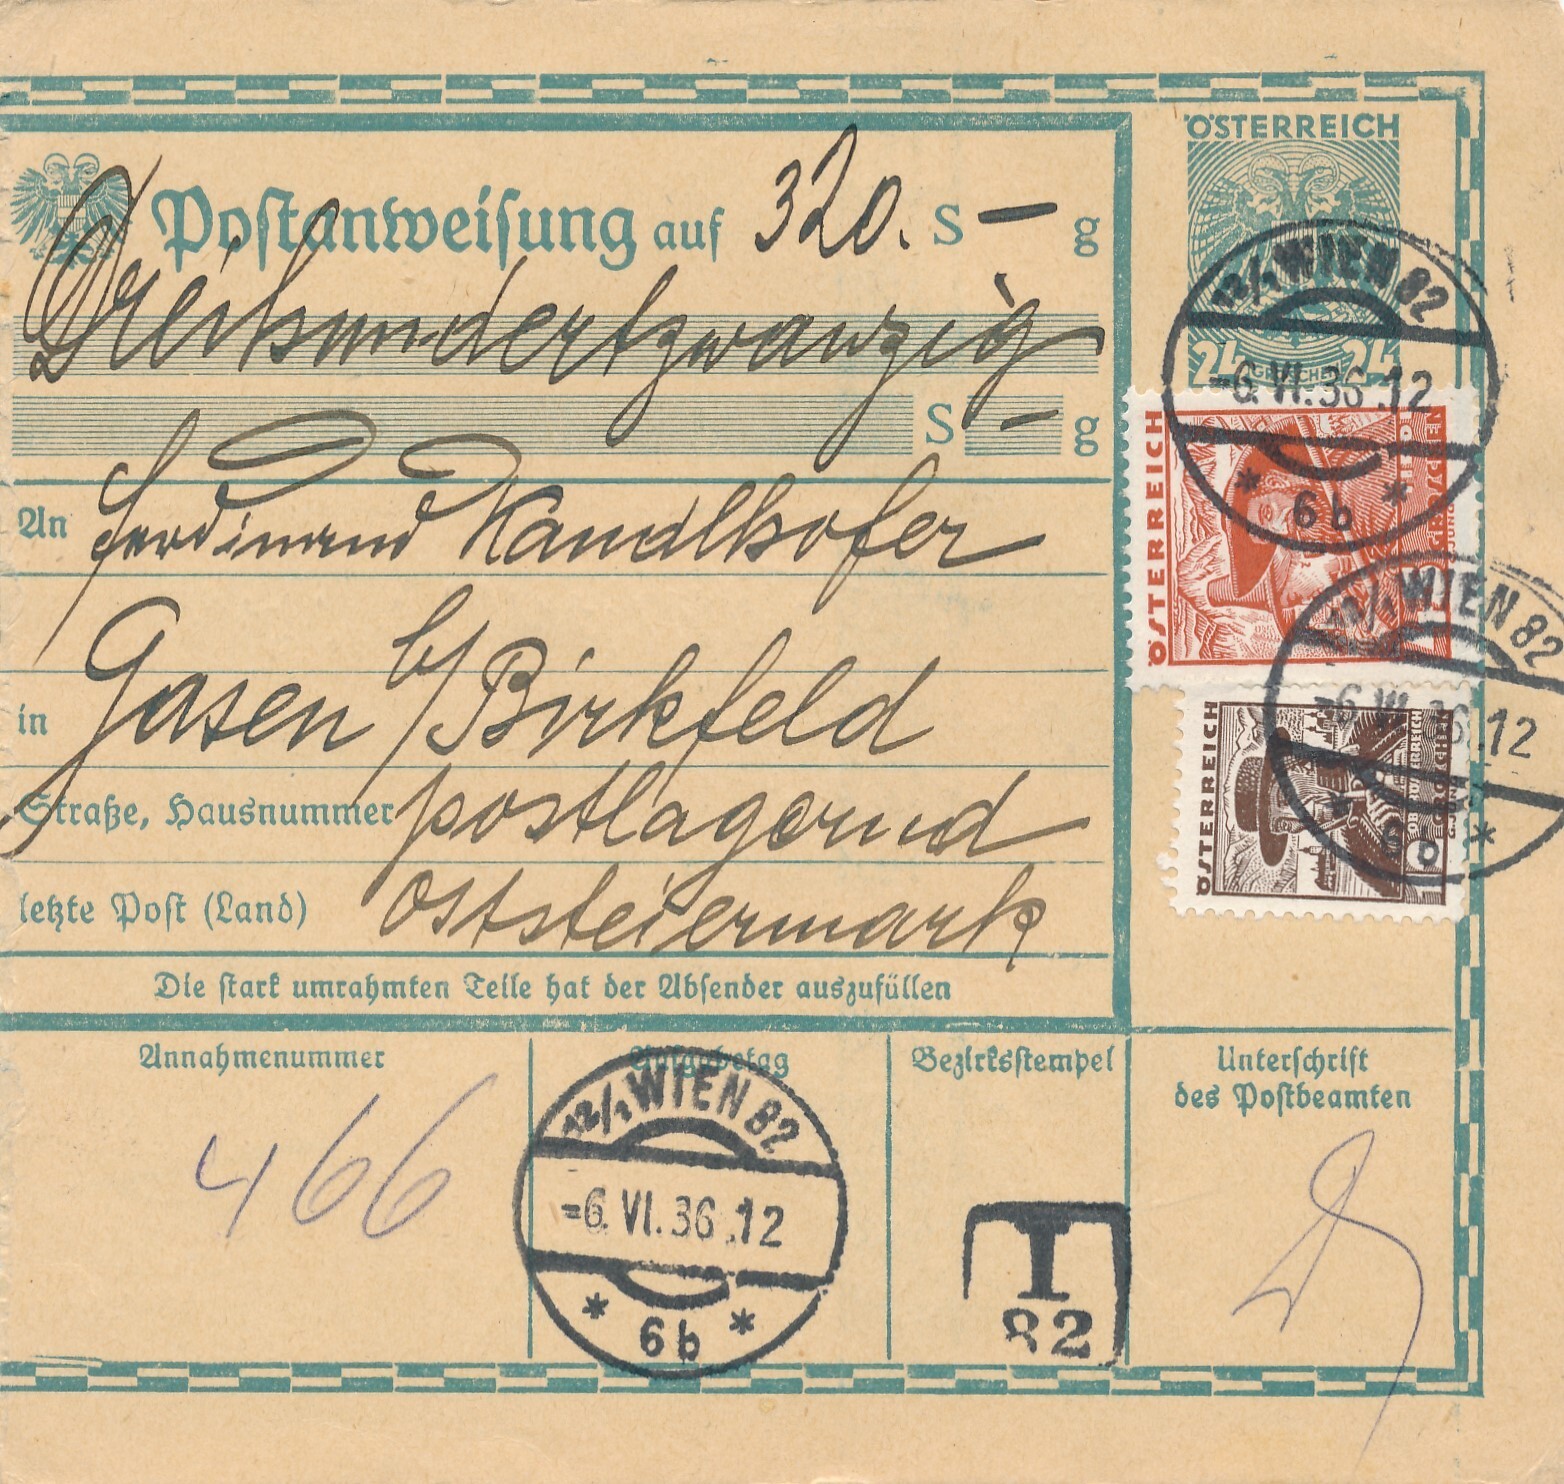 Postanweisung auf 320. S — g
Dreihundertzwanzig
S — g
An Ferdinand Kandlhofer
in Gasen b/Birkfeld
Straße, Hausnummer postlagernd
letzte Post (Land) Oststeiermark
Die stark umrahmten Teile hat der Absender auszufüllen
ÖSTERREICH
24 GROSCHEN 24
12/1 WIEN 82
-6.VI.36.12
* 6b *
ÖSTERREICH
12/1 WIEN 82
-6.VI.36.12
* 6b *
ÖSTERREICH
OBERÖSTERREICH
GROSCHEN
Annahmenummer
466
Aufgabetag
12/1 WIEN 82
-6.VI.36.12
* 6b *
Bezirksstempel
I
82
Unterschrift
des Postbeamten